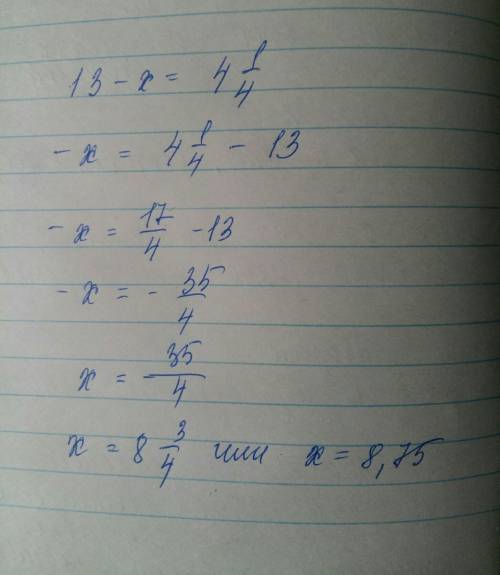 13 - x = 4 1/4
- x = 4 1/4 - 13
- x = 17/4 - 13
- x = - 35/4
x = - 35/4
x = 8 3/4 или x = 8,75